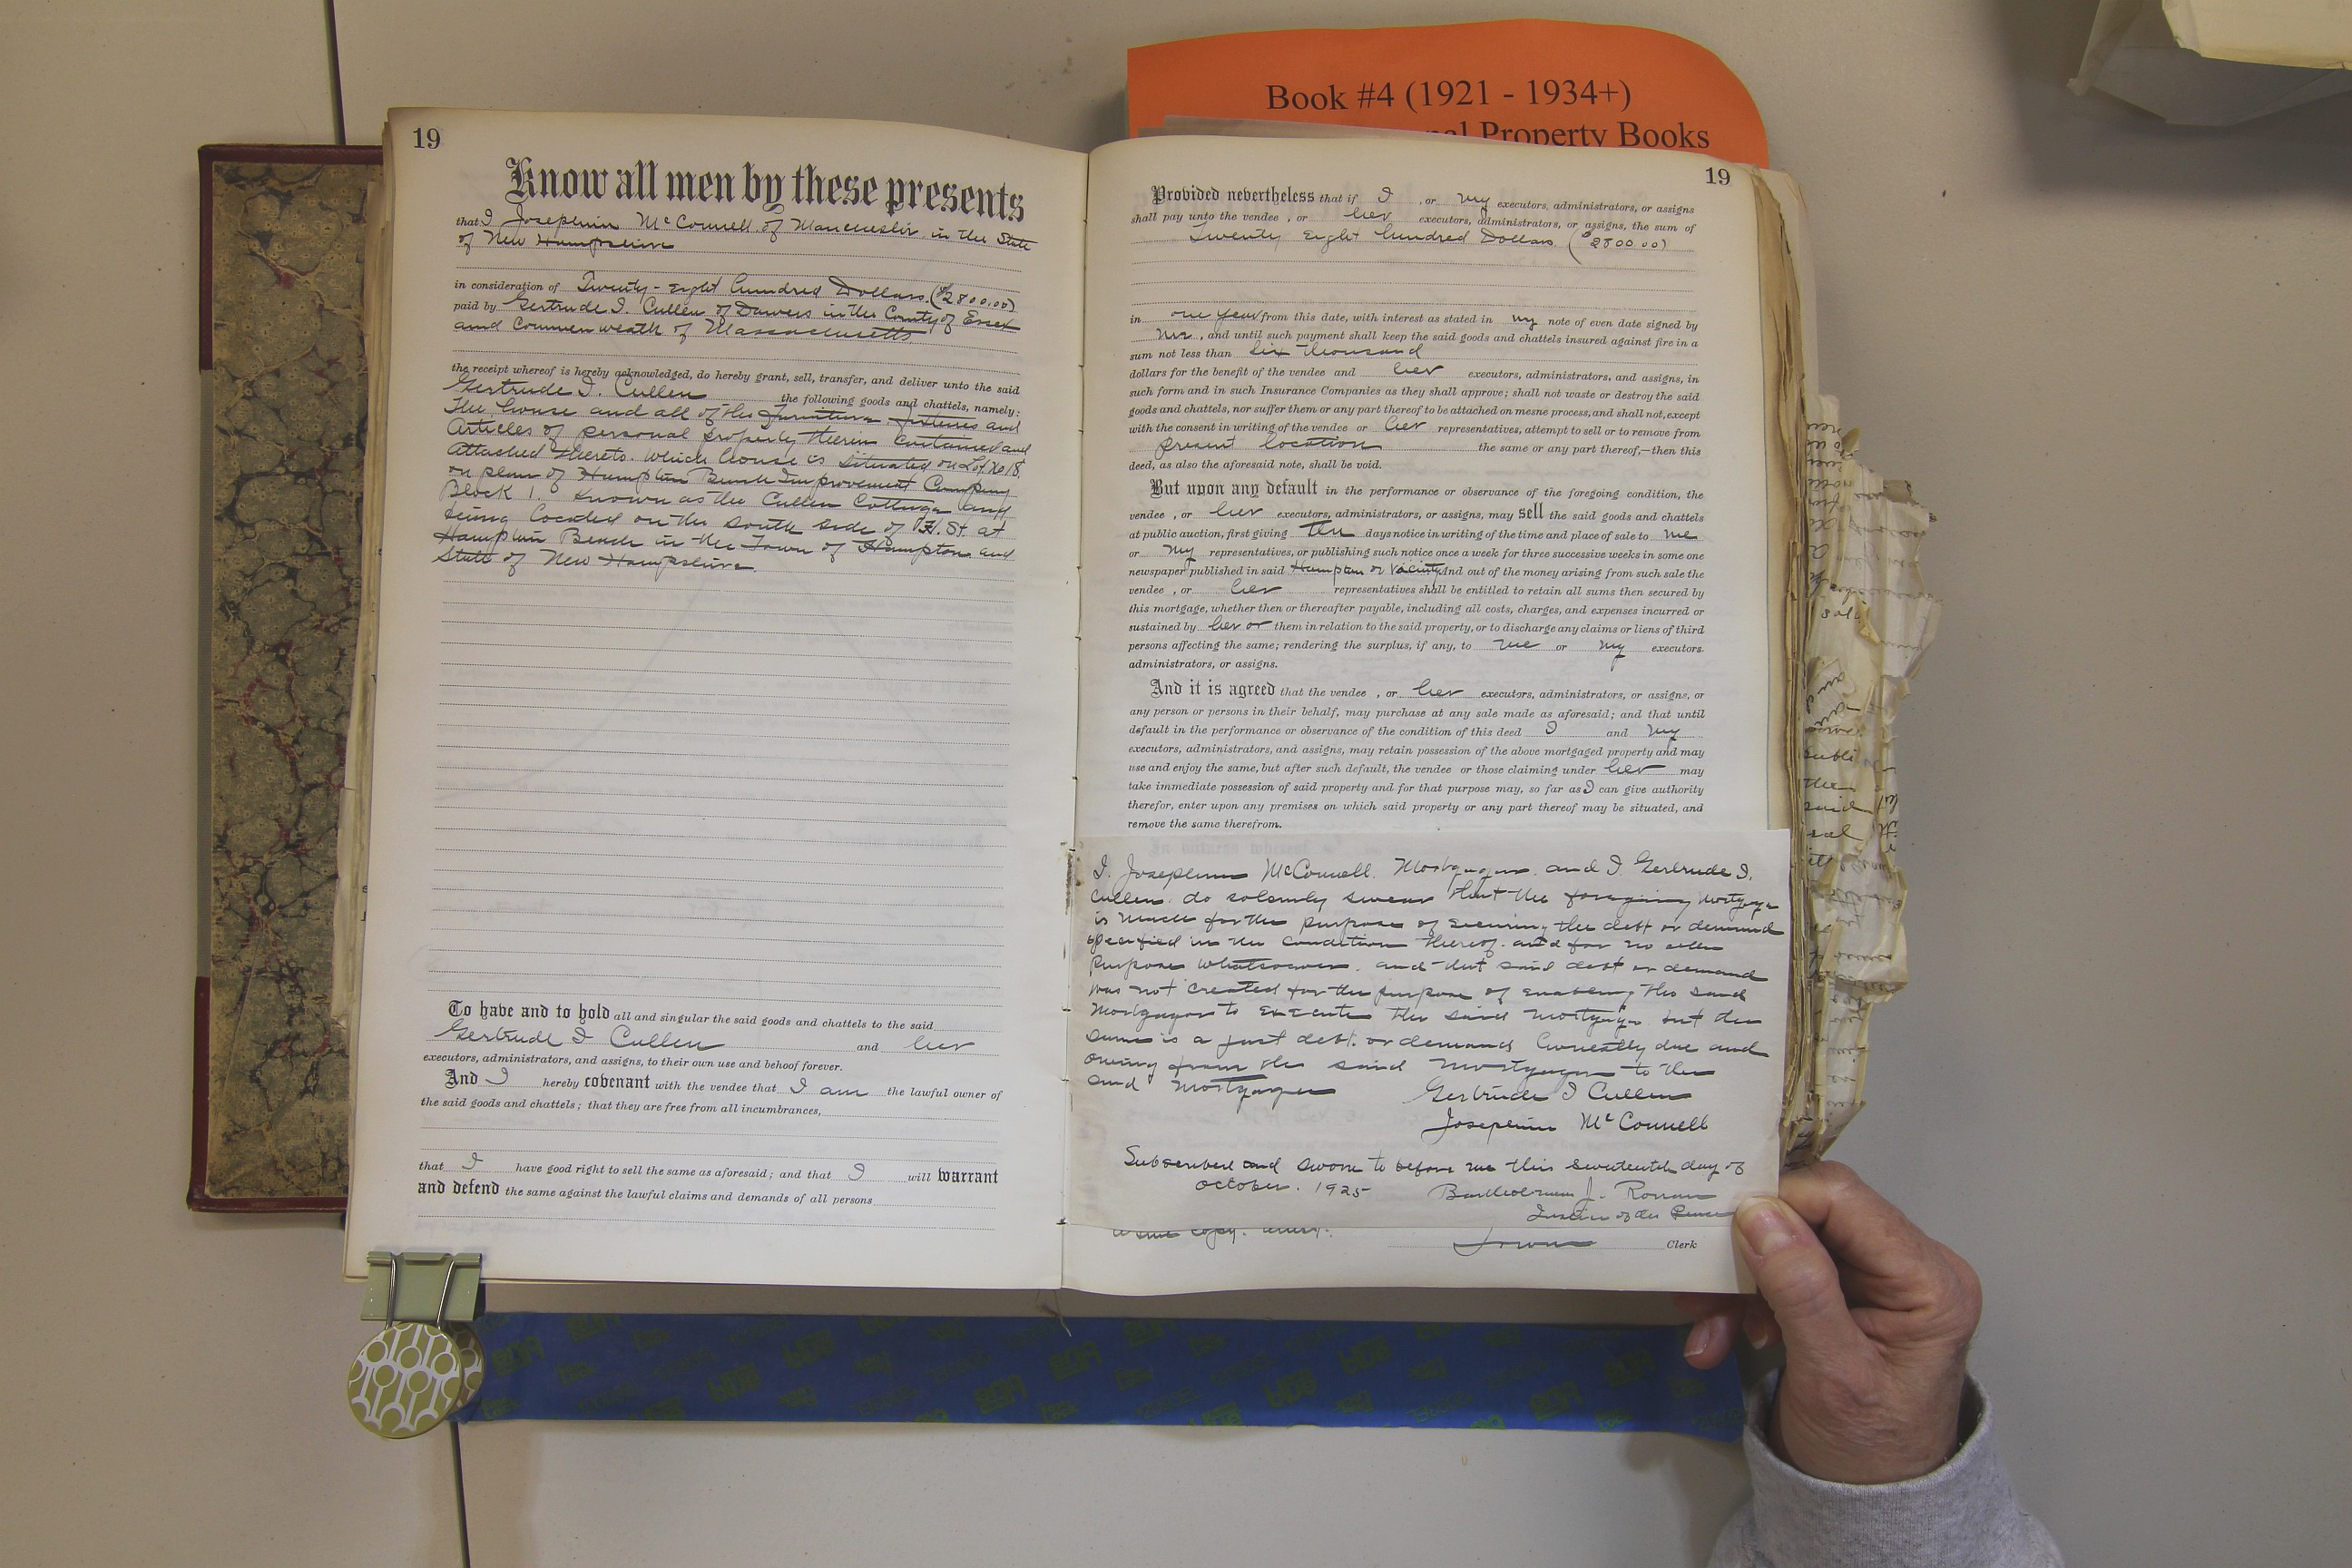 Book #4 (1921 - 1934+)
Property Books
19
Know all men by these presents
that I Josephine McConnell of Manchester in the State
of New Hampshire
in consideration of Twenty-eight hundred Dollars ($2800.00)
paid by Gertrude I. Cullen of Danvers in the County of Essex
and Commonweath of Massachusetts.
the receipt whereof is hereby acknowledged, do hereby grant, sell, transfer, and deliver unto the said
Gertrude I. Cullen the following goods and chattels, namely:
The house and all of the furniture, fixtures and
Articles of personal property therein contained and
Attached thereto. Which house is situated on Lot No 18
on plan of Hampton Beach Improvement Company
Block 1. Known as the Cullen Cottage and
being located on the south side of H. St. at
Hampton Beach in the Town of Hampton and
State of New Hampshire.
To have and to hold all and singular the said goods and chattels to the said
Gertrude I Cullen and her
executors, administrators, and assigns, to their own use and behoof forever.
And I hereby covenant with the vendee that I am the lawful owner of
the said goods and chattels; that they are free from all incumbrances,
that I have good right to sell the same as aforesaid; and that I will warrant
and defend the same against the lawful claims and demands of all persons
19
Provided nevertheless that if I , or my executors, administrators, or assigns
shall pay unto the vendee , or her executors, administrators, or assigns, the sum of
Twenty Eight hundred Dollars. ($2800.00)
in one year from this date, with interest as stated in my note of even date signed by
me , and until such payment shall keep the said goods and chattels insured against fire in a
sum not less than Six thousand
dollars for the benefit of the vendee and her executors, administrators, and assigns, in
such form and in such Insurance Companies as they shall approve; shall not waste or destroy the said
goods and chattels, nor suffer them or any part thereof to be attached on mesne process, and shall not, except
with the consent in writing of the vendee or her representatives, attempt to sell or to remove from
present location the same or any part thereof,—then this
deed, as also the aforesaid note, shall be void.
But upon any default in the performance or observance of the foregoing condition, the
vendee , or her executors, administrators, or assigns, may sell the said goods and chattels
at public auction, first giving ten days notice in writing of the time and place of sale to me
or my representatives, or publishing such notice once a week for three successive weeks in some one
newspaper published in said Hampton or vicinity And out of the money arising from such sale the
vendee , or her representatives shall be entitled to retain all sums then secured by
this mortgage, whether then or thereafter payable, including all costs, charges, and expenses incurred or
sustained by her or them in relation to the said property, or to discharge any claims or liens of third
persons affecting the same; rendering the surplus, if any, to me or my executors.
administrators, or assigns.
And it is agreed that the vendee , or her executors, administrators, or assigns, or
any person or persons in their behalf, may purchase at any sale made as aforesaid; and that until
default in the performance or observance of the condition of this deed I and my
executors, administrators, and assigns, may retain possession of the above mortgaged property and may
use and enjoy the same, but after such default, the vendee or those claiming under her may
take immediate possession of said property and for that purpose may, so far as I can give authority
therefor, enter upon any premises on which said property or any part thereof may be situated, and
remove the same therefrom.
I. Josephine McConnell. Mortgagor. and I. Gertrude I.
Cullen. do solemnly swear that the foregoing mortgage
is made for the purpose of securing the debt or demand
specified in the condition thereof. and for no other
purpose whatsoever. and that said debt or demand
was not created for the purpose of enabling the said
Mortgagor to execute the said mortgage. but the
same is a just debt. or demand honestly due and
owing from the said mortgagor to the
said mortgagee
Gertrude I Cullen
Josephine McConnell
Subscribed and sworn to before me this seventeenth day of
October. 1925
Bartholomew J. Ronan
Justice of the Peace
a true copy. attest.
Town Clerk